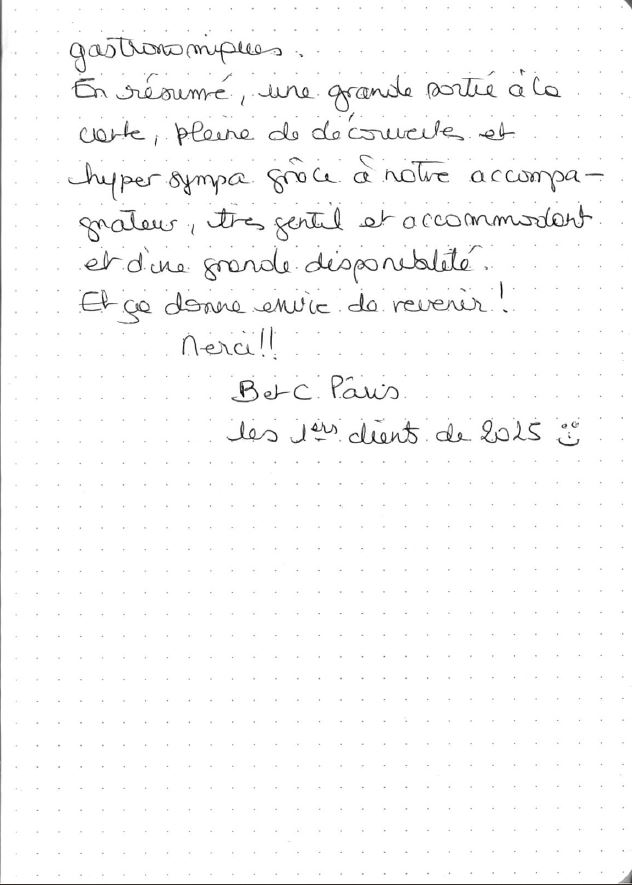 gastronomiques.
En résumé, une grande sortie à la
carte, pleine de découvertes et
hyper sympa grâce à notre accompa-
gnateur, très gentil et accommodant
et d'une grande disponibilité.
Et ça donne envie de revenir !
Merci !!
B et C Pâris
les 1ers clients de 2025 ☺